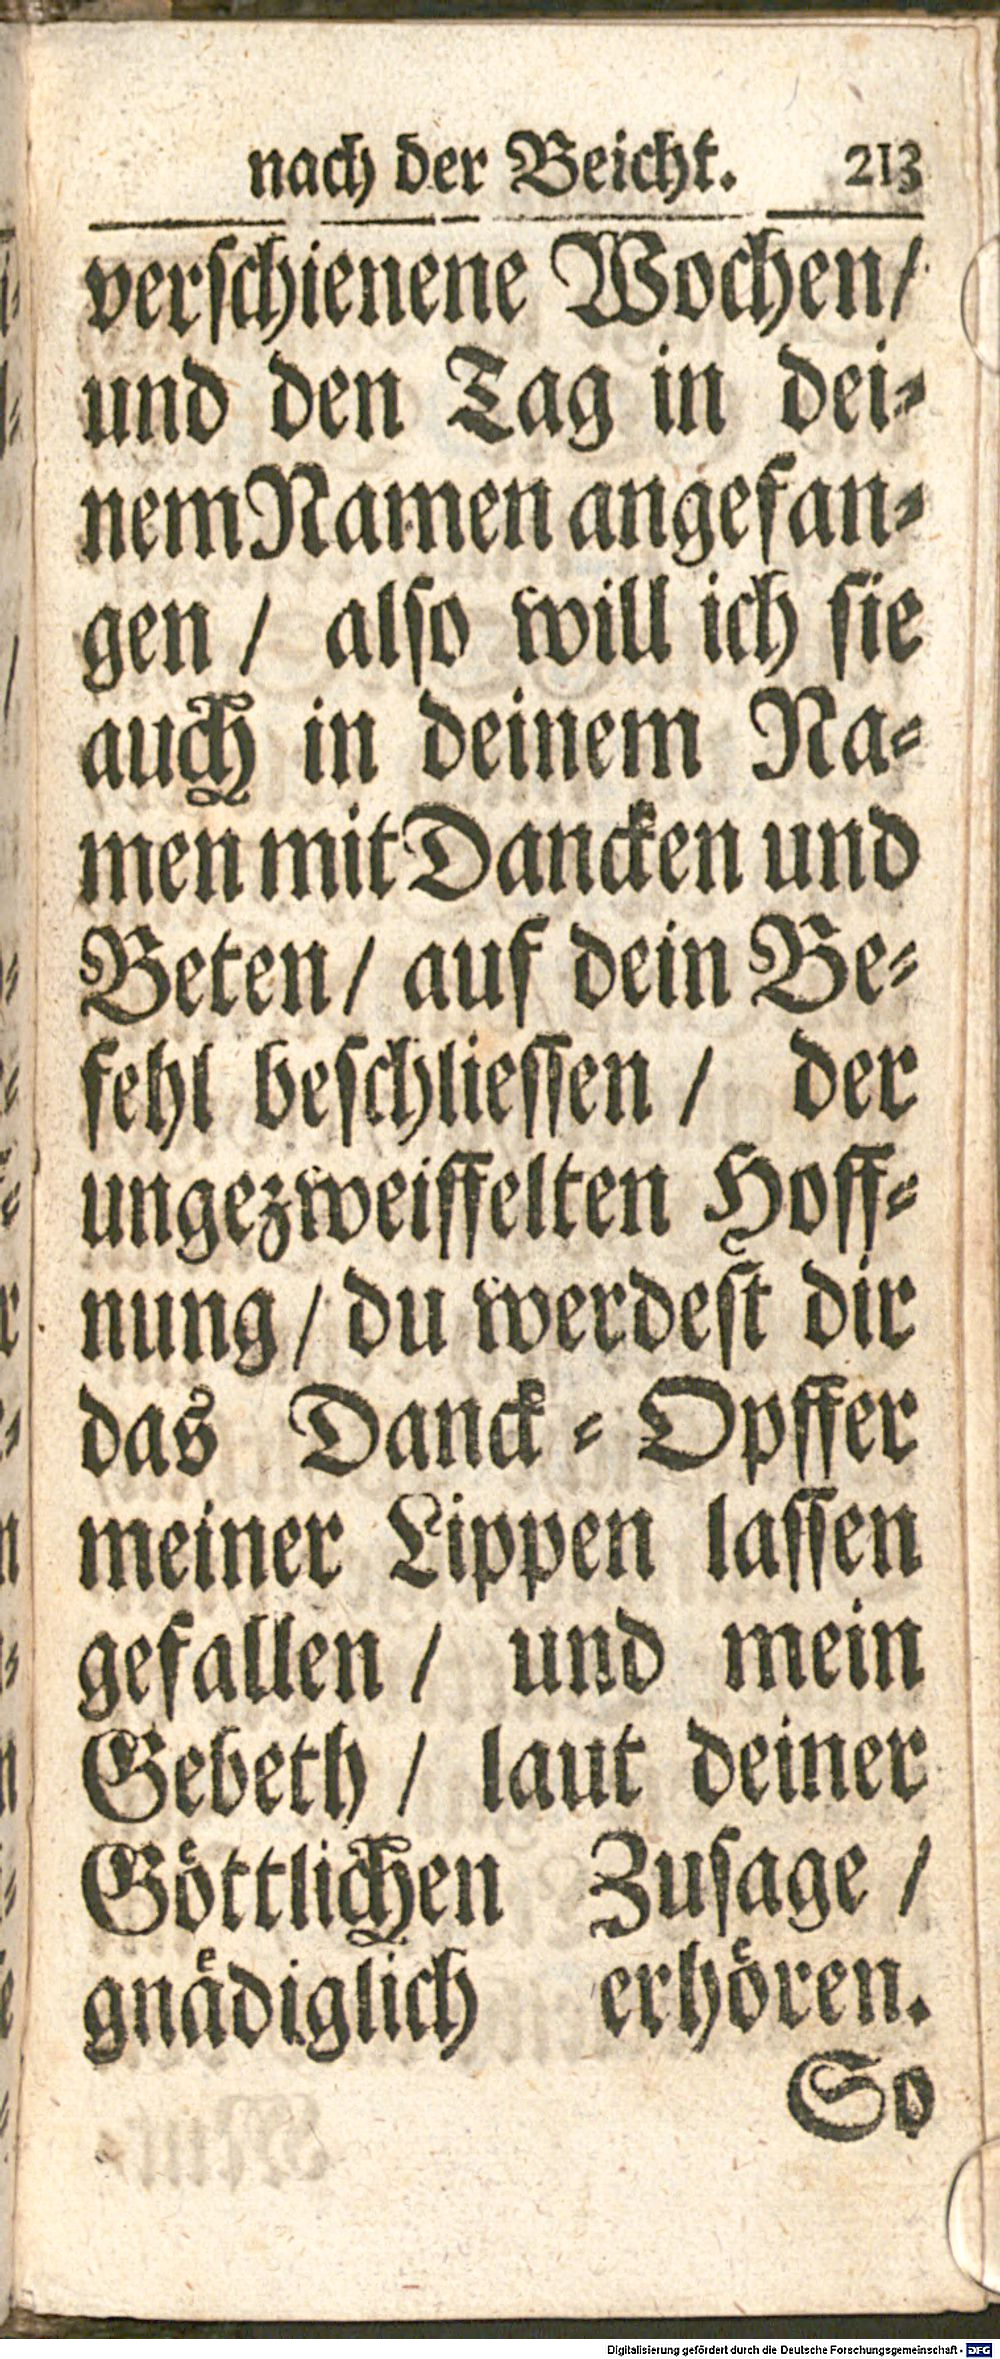 nach der Beicht. 213
verschienene Wochen/
und den Tag in dei-
nem Namen angefan-
gen / also will ich sie
auch in deinem Na-
men mit Dancken und
Beten/ auf dein Be-
fehl beschliessen / der
ungezweiffelten Hoff-
nung / du werdest dir
das Danck - Opffer
meiner Lippen lassen
gefallen / und mein
Gebeth / laut deiner
Göttlichen Zusage /
gnädiglich erhören.
So
Digitalisierung gefördert durch die Deutsche Forschungsgemeinschaft - DFG